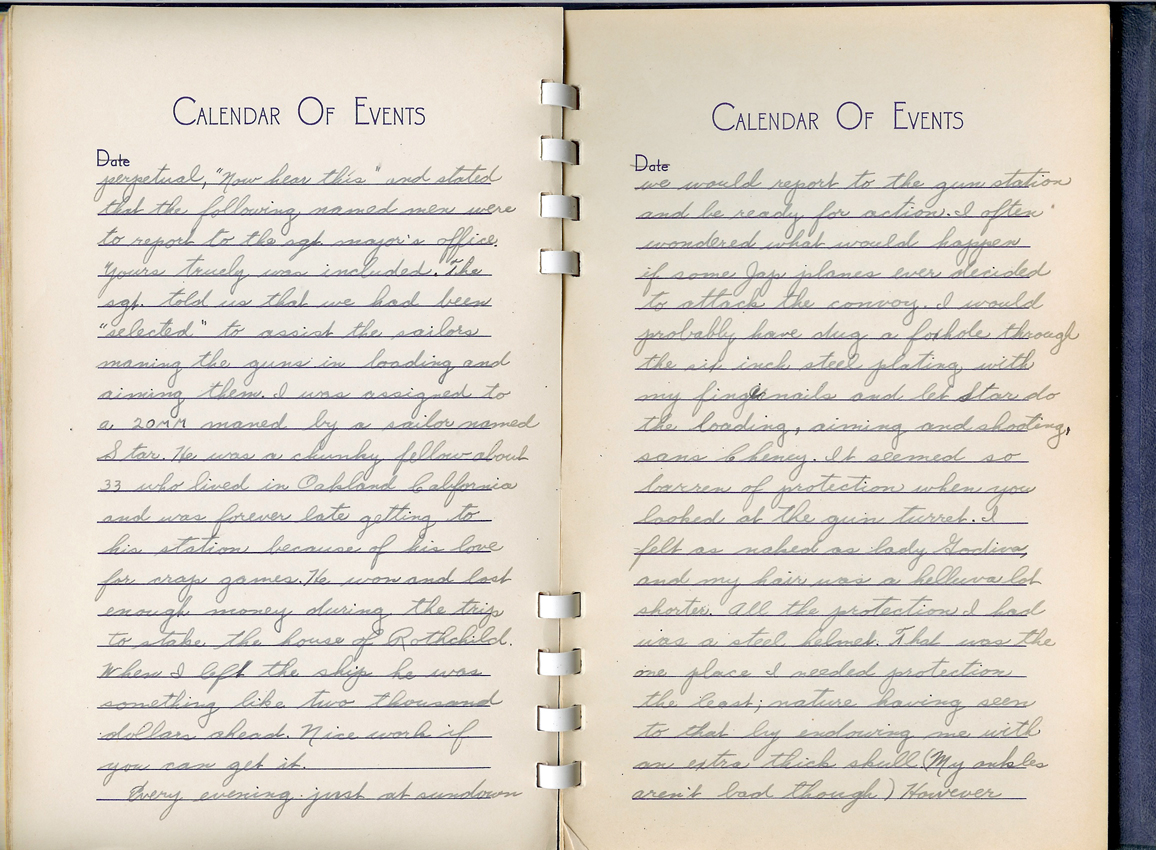 CALENDAR OF EVENTS
Date
perpetual, "Now hear this" and stated
that the following named men were
to report to the sgt major's office.
"Yours truely was included. The
sgt. told us that we had been
"selected" to assist the sailors
maning the guns in loading and
aiming them. I was assigned to
a 20MM maned by a sailor named
Star. He was a chunky fellow about
33 who lived in Oakland California
and was forever late getting to
his station because of his love
for crap games. He won and lost
enough money during the trip
to stake the house of Rothchild.
When I left the ship he was
something like two thousand
dollars ahead. Nice work if
you can get it.
Every evening just at sundown
CALENDAR OF EVENTS
Date
we would report to the gun station
and be ready for action. I often
wondered what would happen
if some Jap planes ever decided
to attack the convoy. I would
probably have dug a foxhole through
the six inch steel plating with
my fingernails and let Star do
the loading, aiming and shooting,
sans Cheney. It seemed so
barren of protection when you
looked at the gun turret. I
felt as naked as lady Godiva,
and my hair was a helluva lot
shorter. All the protection I had
was a steel helmet. That was the
one place I needed protection
the least; nature having seen
to that by endowing me with
an extra thick skull (My ankles
aren't bad though) However